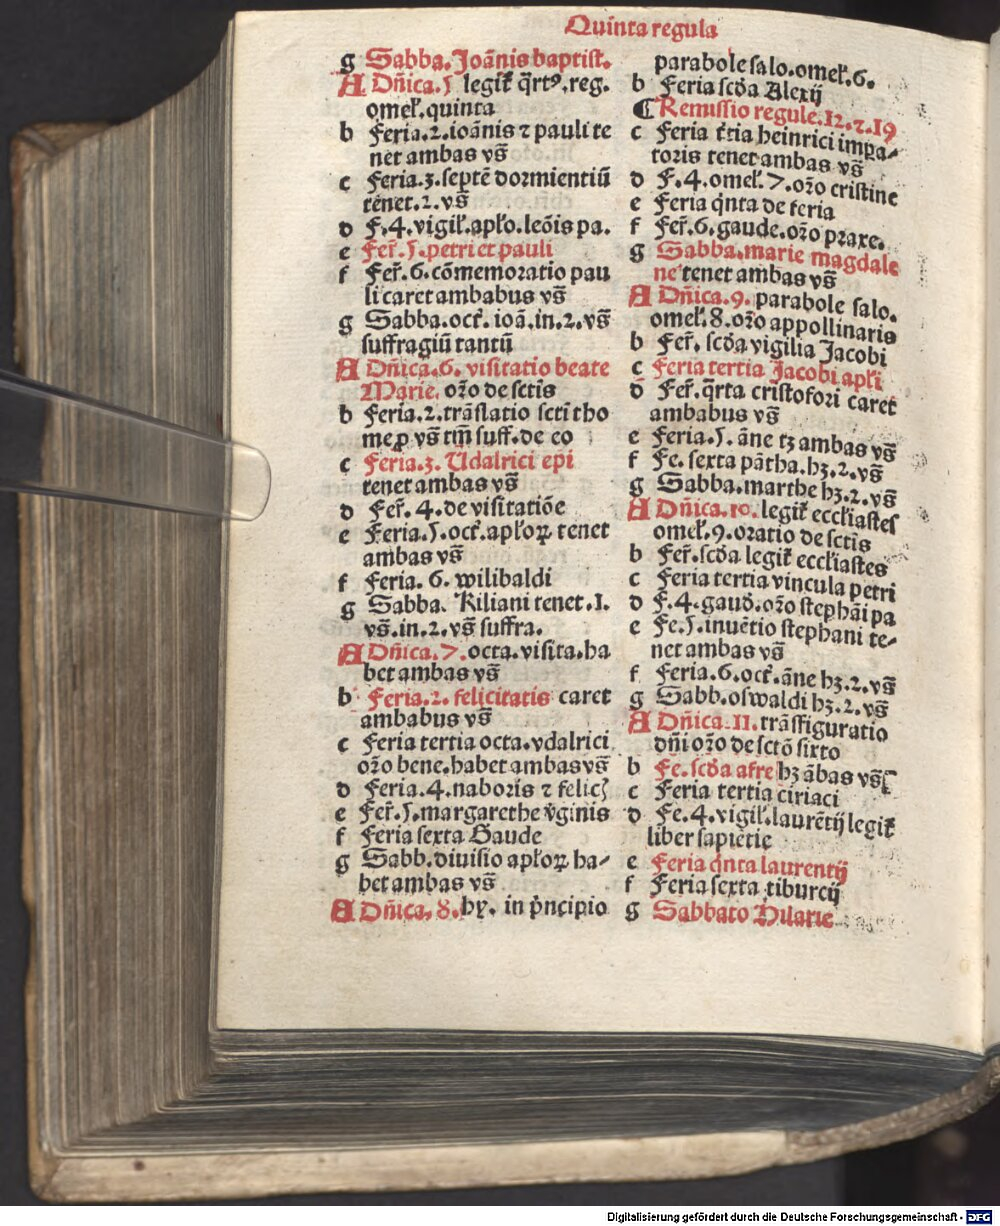 Quinta regula
g Sabba. Joãnis baptist.
A Dñica. 5 legit̃ q̃rtꝰ. reg.
omel̃. quinta
b Feria. 2. ioãnis ⁊ pauli te
net ambas vs̃
c Feria. 3. septẽ dormientiũ
tenet. 2. vs̃
d F. 4. vigil̃. apl̃o. leõis pa.
e Fer̃. 5. petri et pauli
f Fer̃. 6. cõmemoratio pau
li caret ambabus vs̃
g Sabba. oct̃. ioã. in. 2. vs̃
suffragiũ tantũ
A Dñica. 6. visitatio beate
Marie. or̃o de sctis
b Feria. 2. trãslatio scti tho
me ꝓ vs̃ tm̃ suff. de eo
c Feria. 3. Udalrici epi
tenet ambas vs̃
d Fer̃. 4. de visitatiõe
e Feria. 5. oct̃. apl̃oꝝ tenet
ambas vs̃
f Feria. 6. wilibaldi
g Sabba. Kiliani tenet. 1.
vs̃. in. 2. vs̃ suffra.
A Dñica. 7. octa. visita. ha
bet ambas vs̃
b Feria. 2. felicitatis caret
ambabus vs̃
c Feria tertia octa. vdalrici
or̃o bene. habet ambas vs̃
d Feria. 4. naboris ⁊ felicꝭ
e Fer̃. 5. margarethe ṽginis
f Feria sexta Gaude
g Sabb. diuisio apl̃oꝝ ha-
bet ambas vs̃
A Dñica. 8. hy. in p̃ncipio
parabole salo. omel̃. 6.
b Feria scd̃a Alexij
¶ Remissio regule. 12. ⁊. 19
c Feria t̃tia heinrici impa-
toris tenet ambas vs̃
d F. 4. omel̃. 7. or̃o cristine
e Feria q̃nta de feria
f Fer̃. 6. gaude. or̃o praxe.
g Sabba. marie magdale
ne tenet ambas vs̃
A Dñica. 9. parabole salo.
omel̃. 8. or̃o appollinaris
b Fer̃. scd̃a vigilia Jacobi
c Feria tertia Jacobi apl̃i
d Fer̃. q̃rta cristofori caret
ambabus vs̃
e Feria. 5. ãne tꝫ ambas vs̃
f Fe. sexta pãtha. hꝫ. 2. vs̃
g Sabba. marthe hꝫ. 2. vs̃
A Dñica. 10. legit̃ eccl̃iastes
omel̃. 9. oratio de sctĩs
b Fer̃. scd̃a legit̃ eccl̃iastes
c Feria tertia vincula petri
d F. 4. gaud̃. or̃o stephãi pa
e Fe. 5. inuẽtio stephani te-
net ambas vs̃
f Feria. 6. oct̃. ãne hꝫ. 2. vs̃
g Sabb. oswaldi hꝫ. 2. vs̃
A Dñica. 11. trãsfiguratio
dñi or̃o de sctõ sixto
b Fe. scd̃a afre hꝫ ãbas vs̃
c Feria tertia ciriaci
d Fe. 4. vigil̃. laurẽtij legit̃
liber sapiẽtie
e Feria q̃nta laurentij
f Feria sexta tiburcij
g Sabbato Hilarie
Digitalisierung gefördert durch die Deutsche Forschungsgemeinschaft - DFG